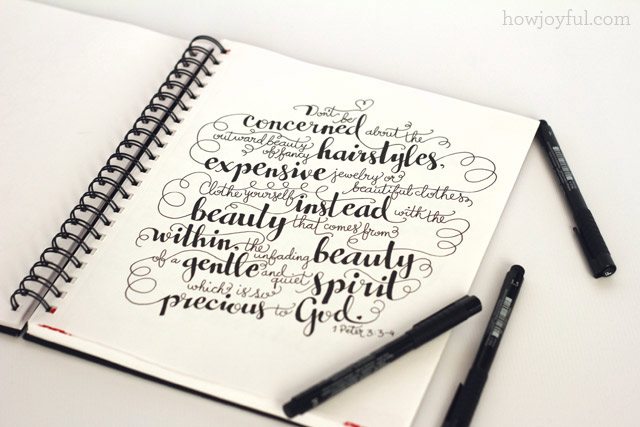 howjoyful.com
Don't be
concerned about the
outward beauty
of fancy hairstyles,
expensive jewelry or
beautiful clothes.
Clothe yourself instead with the
beauty that comes from
within, the unfading beauty
of a gentle and quiet spirit
which is so
precious to God.
1 Peter 3:3-4